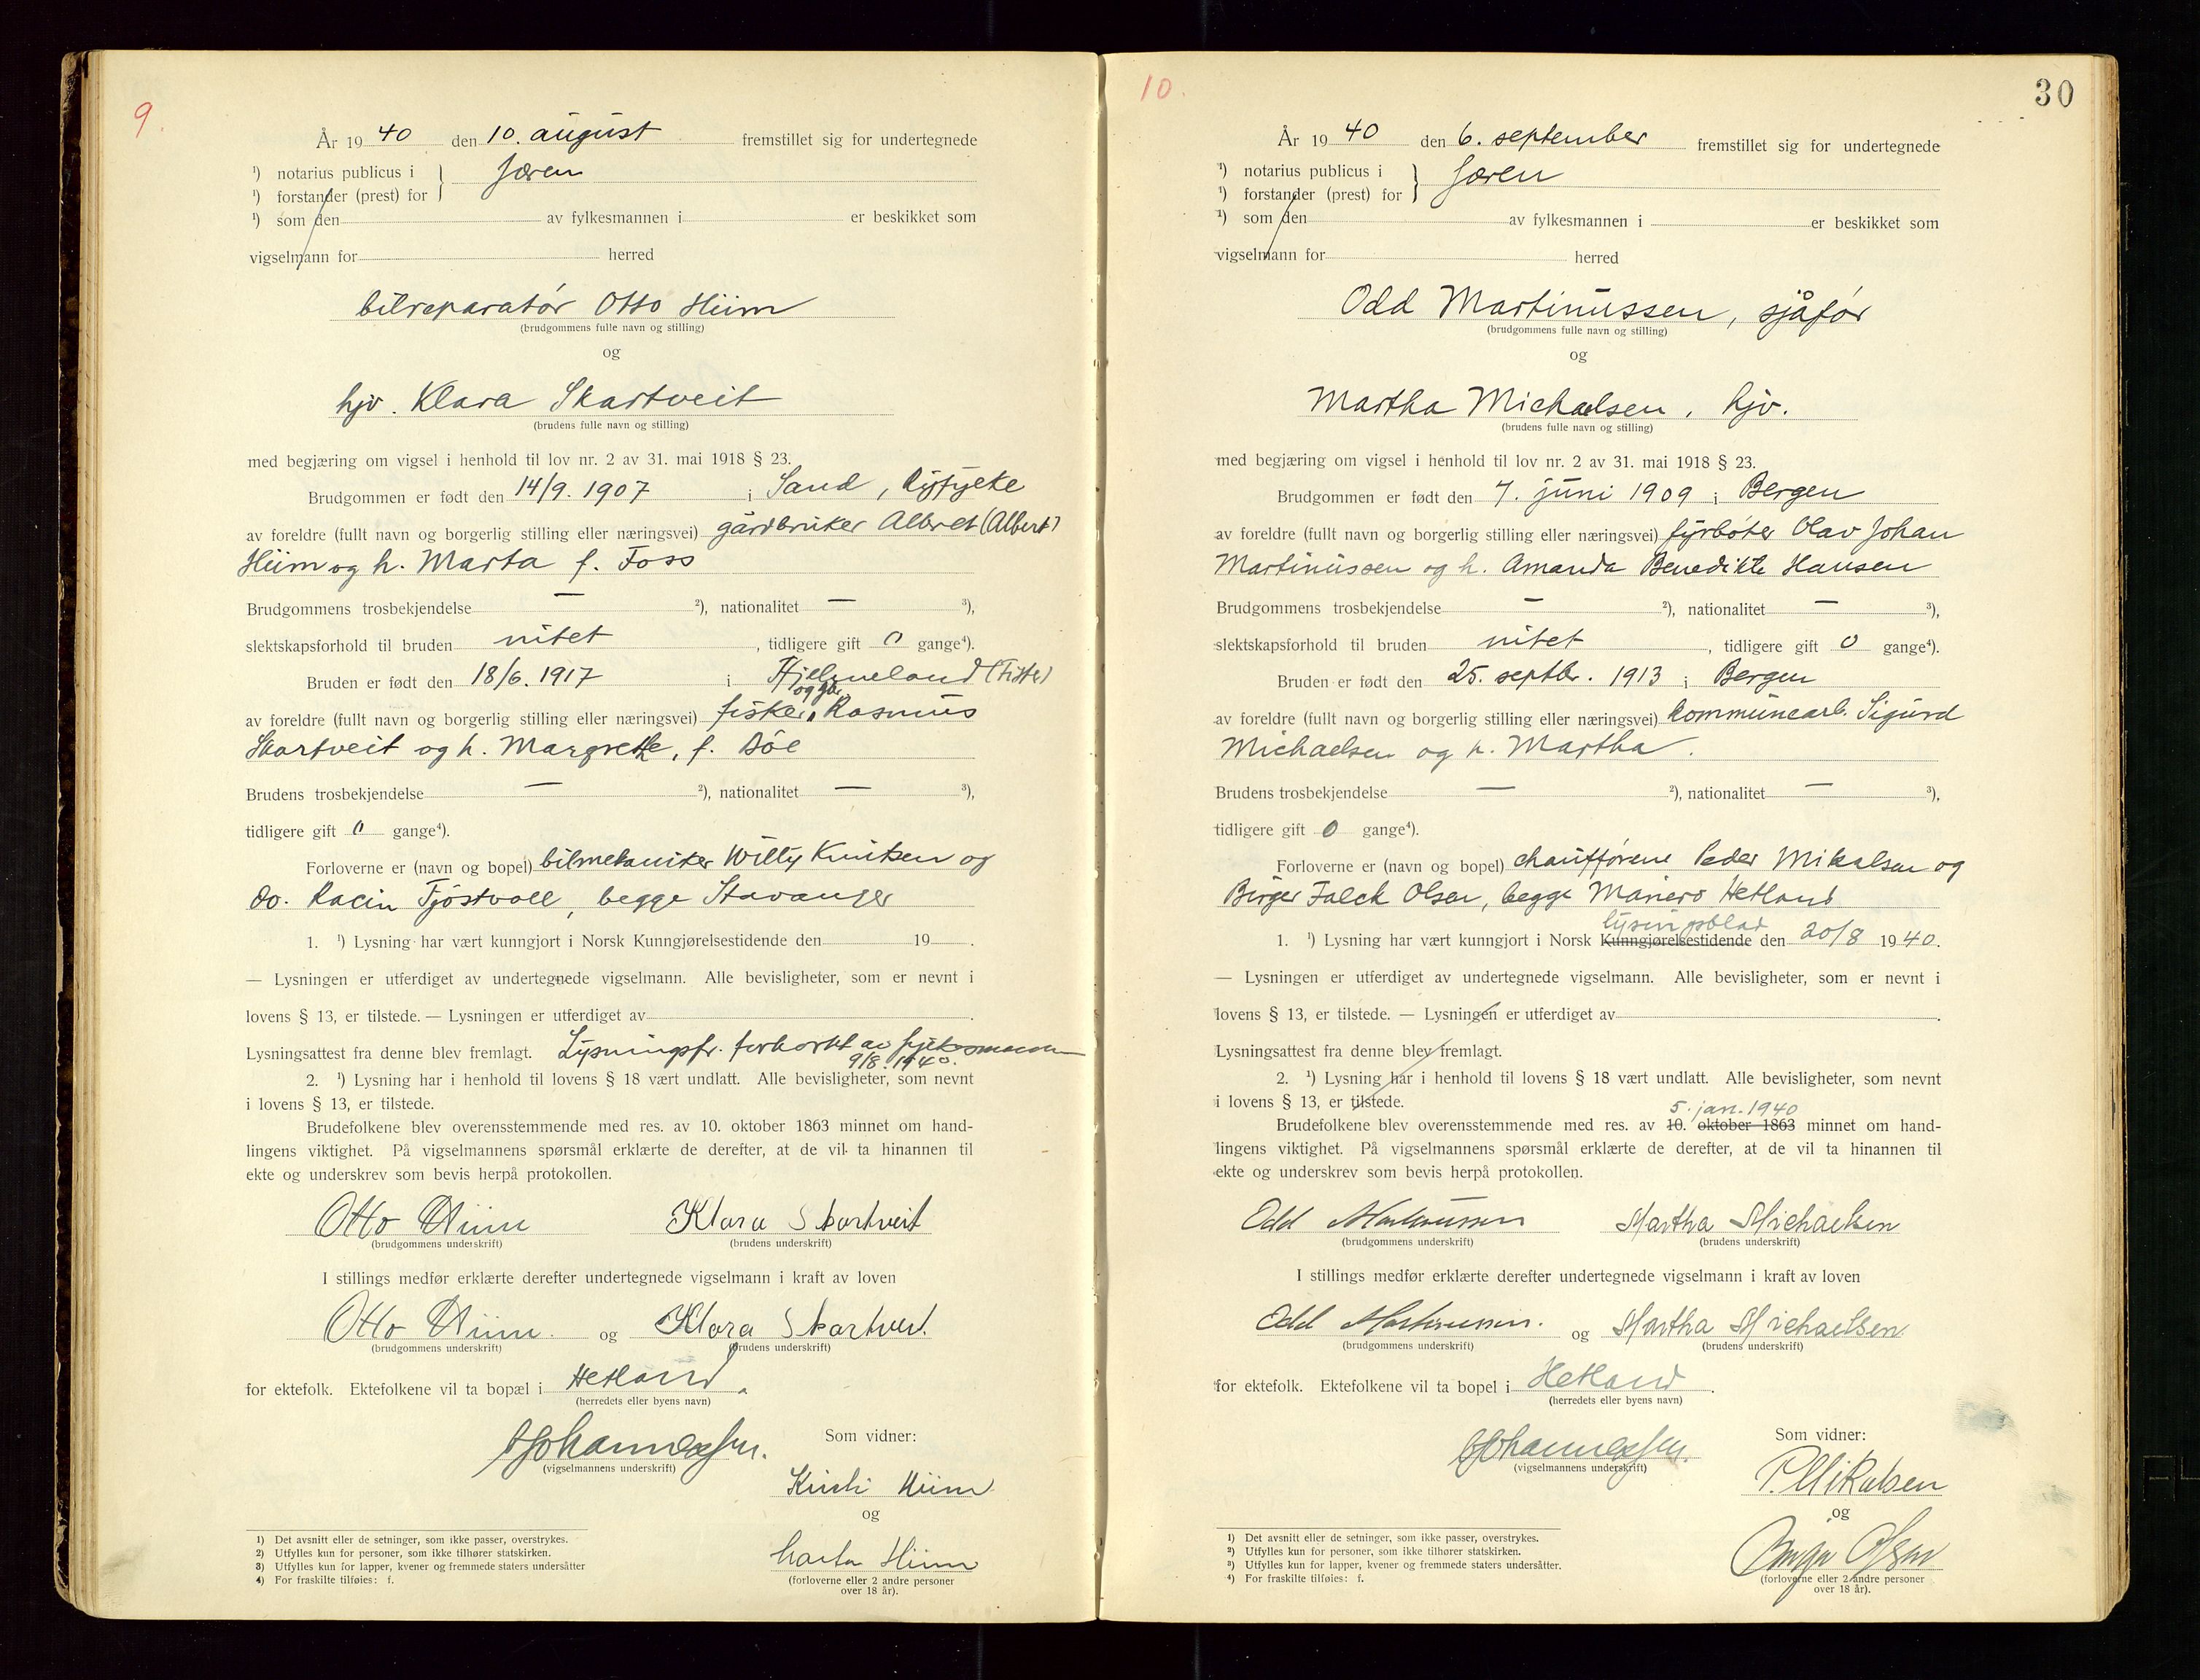 9.
År 1940 den 10. august fremstillet sig for undertegnede
¹) notarius publicus i } Jæren
¹) forstander (prest) for
¹) som den av fylkesmannen i er beskikket som
vigselmann for herred
bilreparatør Otto Hiim
(brudgommens fulle navn og stilling)
og
hjv. Klara Skartveit
(brudens fulle navn og stilling)
med begjæring om vigsel i henhold til lov nr. 2 av 31. mai 1918 § 23.
Brudgommen er født den 14/9. 1907 i Sand, Ryfylke
av foreldre (fullt navn og borgerlig stilling eller næringsvei) gårdbruker Albret (Albert)
Hiim og h. Marta f. Foss
Brudgommens trosbekjendelse — ²), nationalitet — ³),
slektskapsforhold til bruden intet, tidligere gift 0 gange⁴).
Bruden er født den 18/6. 1917 i Hjelmeland (Fister)
og gbr.
av foreldre (fullt navn og borgerlig stilling eller næringsvei) fisker Rasmus
Skartveit og h. Margrethe, f. Bøe
Brudens trosbekjendelse — ²), nationalitet — ³),
tidligere gift 0 gange⁴).
Forloverne er (navn og bopel) bilmekaniker Willy Knutsen og
do. Racin Tjøstvoll, begge Stavanger
1. ¹) Lysning har vært kunngjort i Norsk Kunngjørelsestidende den 19 .
— Lysningen er utferdiget av undertegnede vigselmann. Alle bevisligheter, som er nevnt i
lovens § 13, er tilstede. — Lysningen er utferdiget av .
Lysningsattest fra denne blev fremlagt. Lysningsfr. forkortet av fylkesmannen
9/8. 1940.
2. ¹) Lysning har i henhold til lovens § 18 vært undlatt. Alle bevisligheter, som nevnt
i lovens § 13, er tilstede.
Brudefolkene blev overensstemmende med res. av 10. oktober 1863 minnet om hand-
lingens viktighet. På vigselmannens spørsmål erklærte de derefter, at de vil ta hinannen til
ekte og underskrev som bevis herpå protokollen.
Otto Hiim Klara Skartveit
(brudgommens underskrift) (brudens underskrift)
I stillings medfør erklærte derefter undertegnede vigselmann i kraft av loven
Otto Hiim. og Klara Skartveit.
(brudgommens underskrift) (brudens underskrift)
for ektefolk. Ektefolkene vil ta bopæl i Hetland.
(herredets eller byens navn)
Johannessen. Som vidner:
(vigselmannens underskrift)
Kirsti Hiim
og
Marta Hiim
(forloverne eller 2 andre personer
over 18 år).
1) Det avsnitt eller de setninger, som ikke passer, overstrykes.
2) Utfylles kun for personer, som ikke tilhører statskirken.
3) Utfylles kun for lapper, kvener og fremmede staters undersåtter
4) For fraskilte tilføies: f.
10.
30
År 1940 den 6. september fremstillet sig for undertegnede
¹) notarius publicus i } Jæren
¹) forstander (prest) for
¹) som den av fylkesmannen i er beskikket som
vigselmann for herred
Odd Martinussen, sjåfør
(brudgommens fulle navn og stilling)
og
Martha Michaelsen, hjv.
(brudens fulle navn og stilling)
med begjæring om vigsel i henhold til lov nr. 2 av 31. mai 1918 § 23.
Brudgommen er født den 7. juni 1909 i Bergen
av foreldre (fullt navn og borgerlig stilling eller næringsvei) fyrbøter Olav Johan
Martinussen og h. Amanda Benedikte Hansen
Brudgommens trosbekjendelse — ²), nationalitet — ³),
slektskapsforhold til bruden intet, tidligere gift 0 gange⁴).
Bruden er født den 25. septbr. 1913 i Bergen
av foreldre (fullt navn og borgerlig stilling eller næringsvei) kommunearb. Sigurd
Michaelsen og h. Martha.
Brudens trosbekjendelse — ²), nationalitet — ³),
tidligere gift 0 gange⁴).
Forloverne er (navn og bopel) chaufførene Peder Mikalsen og
Birger Falck Olsen, begge Mariero Hetland
lysingsblad
1. ¹) Lysning har vært kunngjort i Norsk Kunngjørelsestidende den 20/8 1940.
— Lysningen er utferdiget av undertegnede vigselmann. Alle bevisligheter, som er nevnt i
lovens § 13, er tilstede. — Lysningen er utferdiget av .
Lysningsattest fra denne blev fremlagt.
2. ¹) Lysning har i henhold til lovens § 18 vært undlatt. Alle bevisligheter, som nevnt
i lovens § 13, er tilstede.
5. jan. 1940
Brudefolkene blev overensstemmende med res. av 10. oktober 1863 minnet om hand-
lingens viktighet. På vigselmannens spørsmål erklærte de derefter, at de vil ta hinannen til
ekte og underskrev som bevis herpå protokollen.
Odd Martinussen Martha Michaelsen
(brudgommens underskrift) (brudens underskrift)
I stillings medfør erklærte derefter undertegnede vigselmann i kraft av loven
Odd Martinussen. og Martha Michaelsen.
(brudgommens underskrift) (brudens underskrift)
for ektefolk. Ektefolkene vil ta bopel i Hetland.
(herredets eller byens navn)
Johannessen. Som vidner:
(vigselmannens underskrift)
P. Mikalsen
og
Birger Olsen
(forloverne eller 2 andre personer
over 18 år).
1) Det avsnitt eller de setninger, som ikke passer, overstrykes.
2) Utfylles kun for personer, som ikke tilhører statskirken.
3) Utfylles kun for lapper, kvener og fremmede staters undersåtter.
4) For fraskilte tilføies: f.